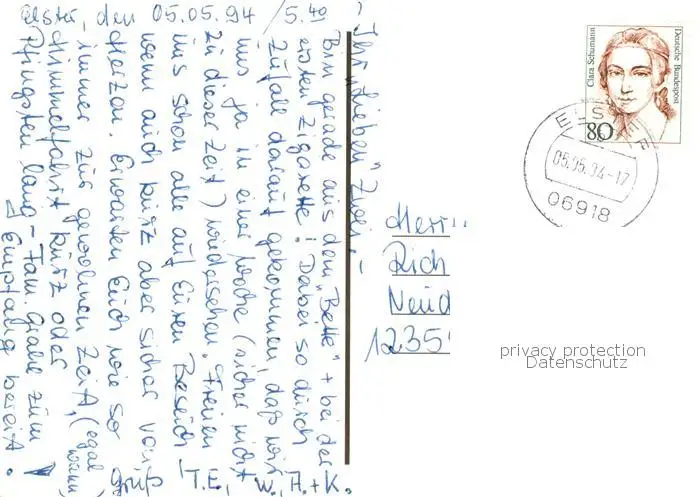 Elster, den 05.05.94 / 5.40
Ihr "Lieben" Zwei, -
Bin gerade aus dem "Bette" + bei der
ersten Zigarette! Dabei so durch
Zufall darauf gekommen, daß wir
uns ja in einer Woche (sicher nicht
zu dieser Zeit) wiedersehen. Freuen
uns schon alle auf Euren Besuch,
wenn auch kurz aber sicher voll
Herzen. Erwarten Euch wie so
immer zur gewohnten Zeit, (egal wann,
Himmelfahrt kurz oder
Pfingsten lang - Fam. Grabe zum
Empfang bereit.
Gruß
T.E., W., H. + K.
Herrn
Rich
Neud
1235
Clara Schumann
Deutsche Bundespost
80
ELSTER
05.05.94-17
06918
privacy protection
Datenschutz